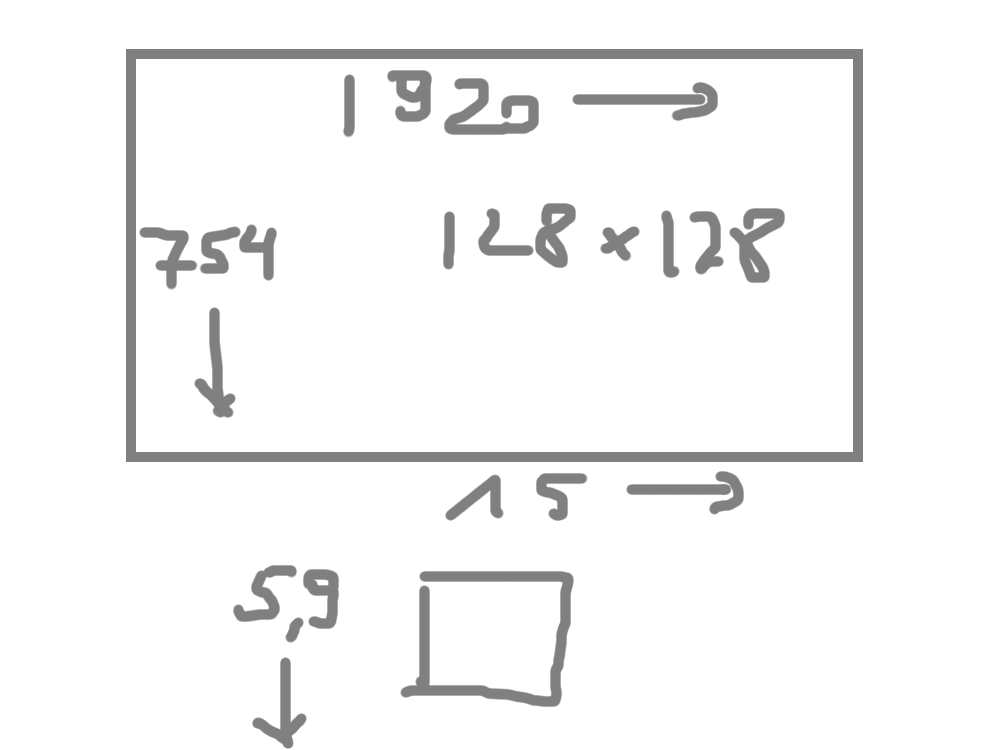 1920
754 128 x 128
15
5,9